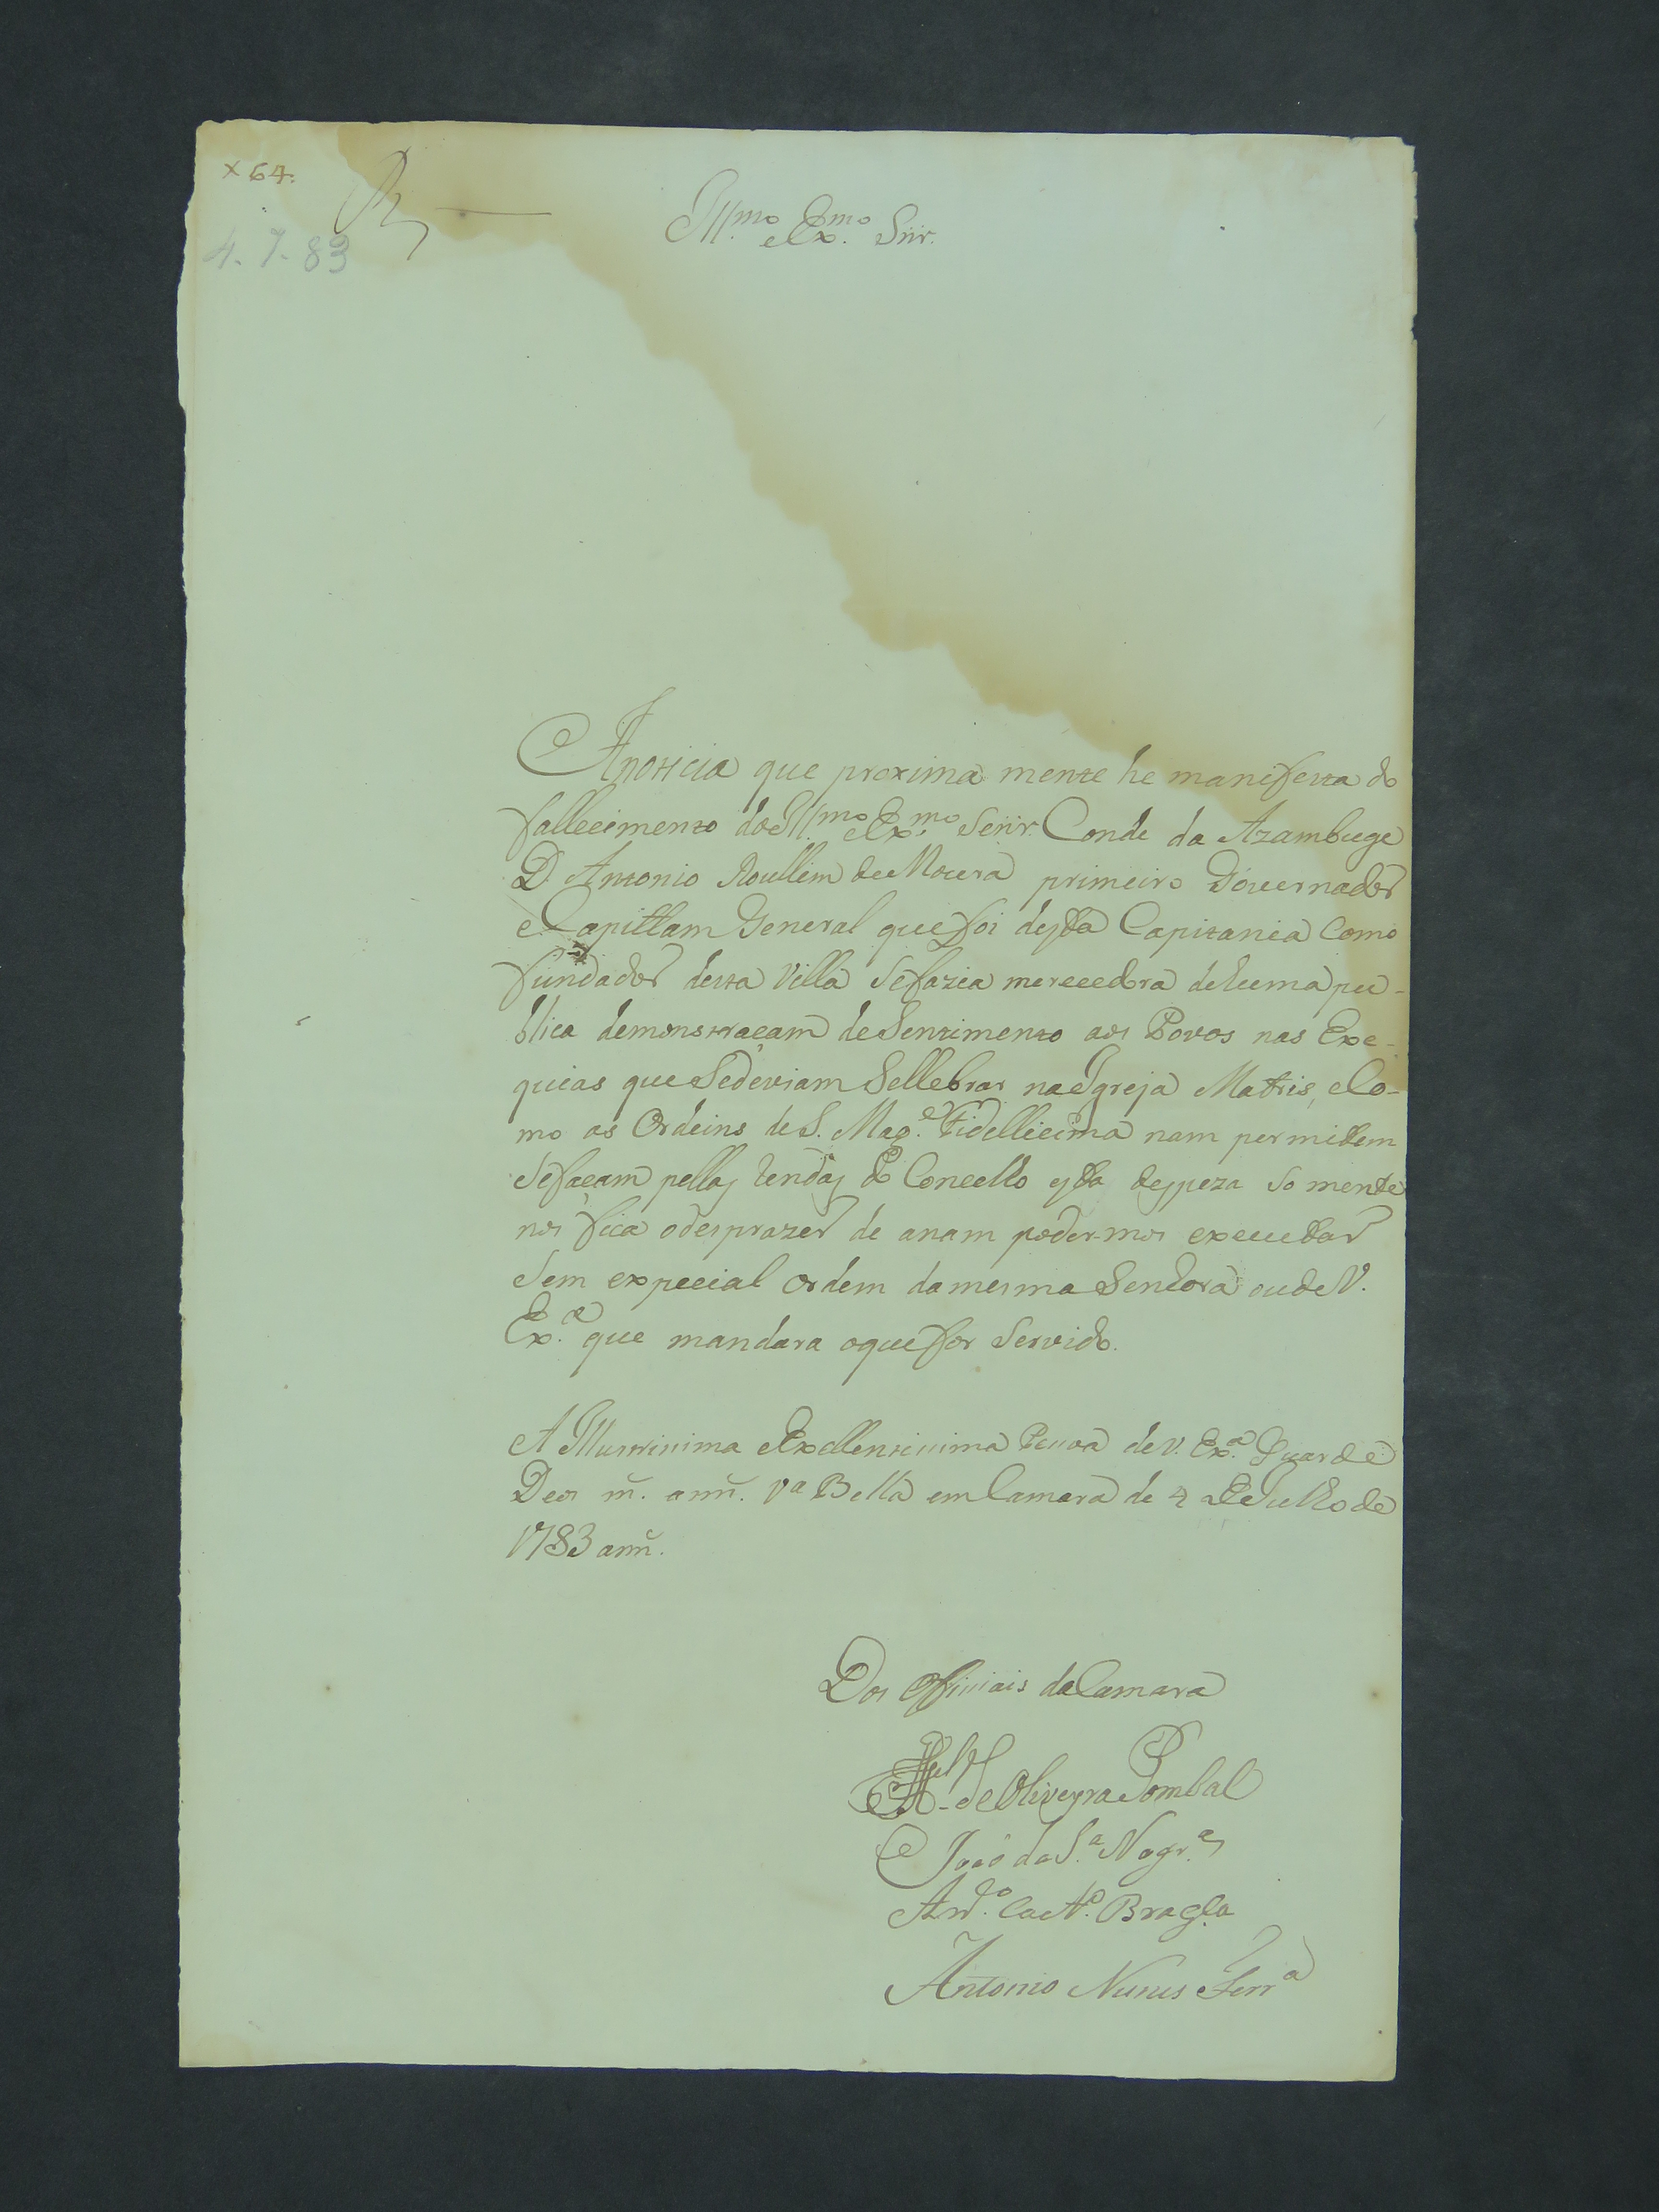 × 64.
R
4.7.83
Ill.mo eEx.mo Snr.
Anoticia que proxima mente he manifesta do
fallecimento doIll.mo eEx.mo Senr. Conde da Azambuge
D. Antonio Roullim deMoura primeiro Governador
eCapittam General quefoi desta Capitania Como
fundador desta Villa Sefazia mereeedora dehuma pu-
blica demonstraçam deSentimento aos Povos nas Exe-
quias queSedeviam Sellebrar naIgreja Matris, eCo-
mo as Ordeins deS. Mag.e Fidellicima nam permitem
Sefaçam pellas rendas do Concelho esta despeza So mente
nos fica odesprazer de anam poder-mos executar
Sem expecial ordem damesma Senhora oudeV.
Ex.a que mandara oquefor Servido.
A Illustrissima eExcellentissima Pecuoa deV. Ex.a Guarde
Deos m. ann. Va Bella emCamara de 4 deJulho de
1783 ann.
Dos Officiais daCamara
M.el deOliveyra Pombal
João daS.a Nogr.a
And.o Caet.o Braga
Antonio Nunes Ferr.a